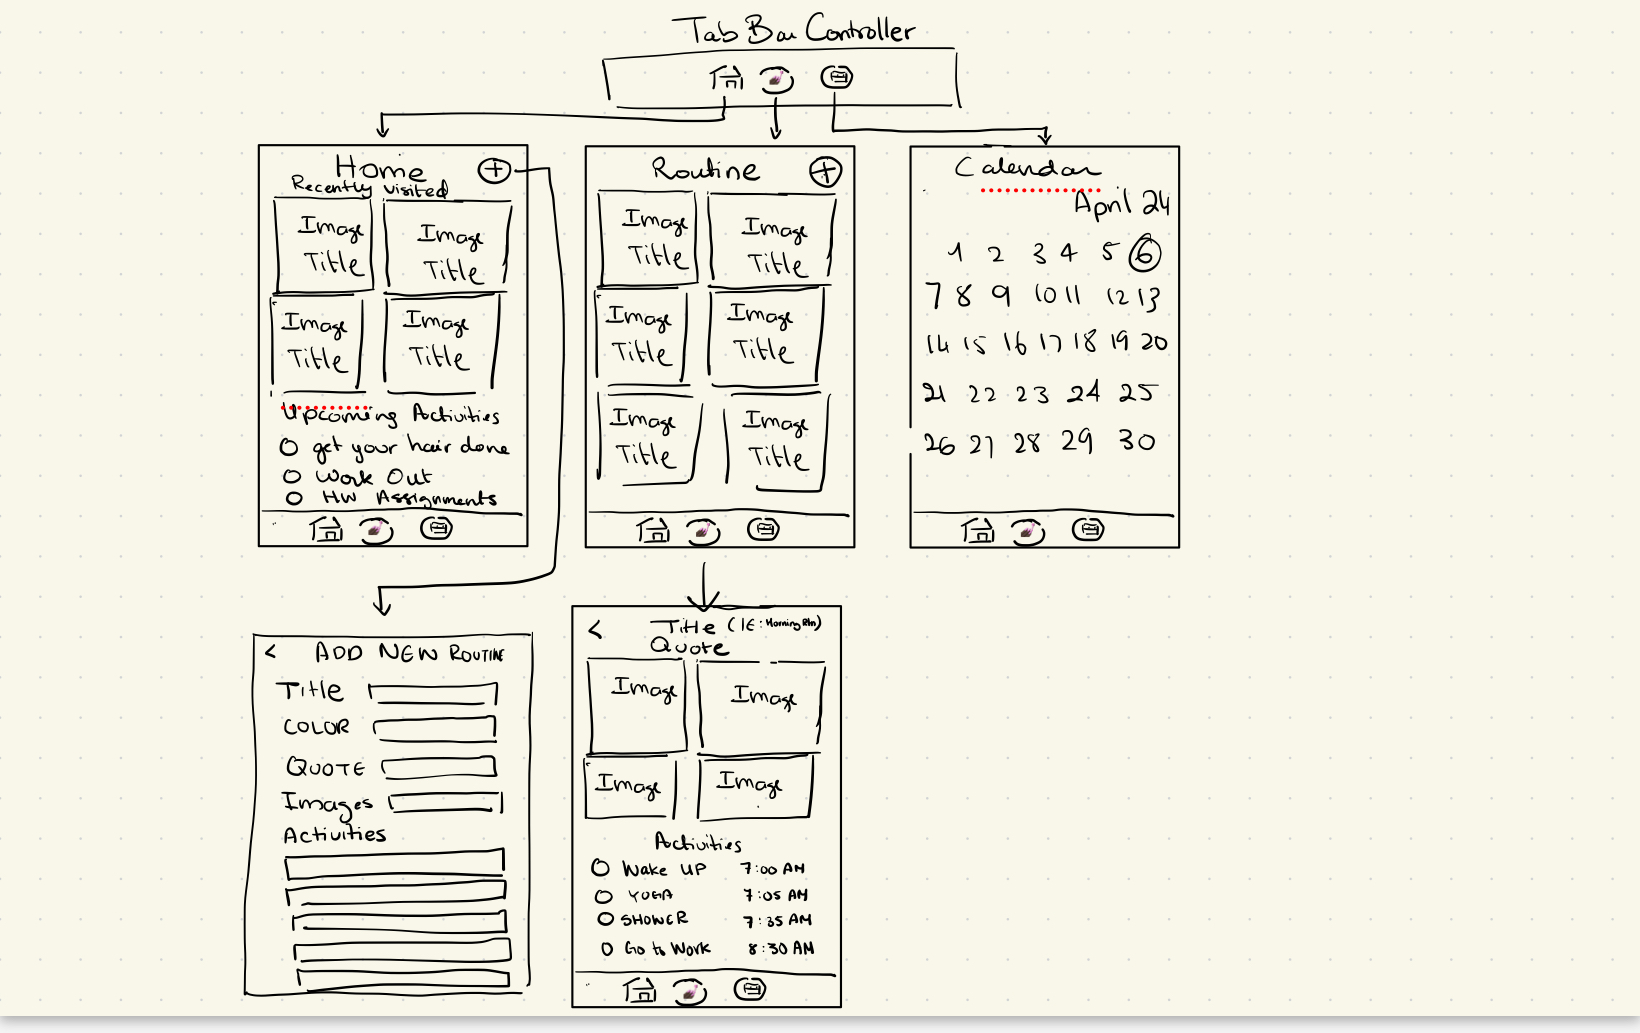 Tab Bar Controller
Home
+
Recently visited
Image
Title
Image
Title
Image
Title
Image
Title
Upcoming Activities
get your hair done
Work Out
HW Assignments
Routine
+
Image
Title
Image
Title
Image
Title
Image
Title
Image
Title
Image
Title
Calendar
April 24
1 2 3 4 5 6
7 8 9 10 11 12 13
14 15 16 17 18 19 20
21 22 23 24 25
26 27 28 29 30
< ADD NEW ROUTINE
Title
COLOR
QUOTE
Images
Activities
< Title (IE: Morning Rtn)
Quote
Image
Image
Image
Image
Activities
Wake UP 7:00 AM
YOGA 7:05 AM
SHOWER 7:35 AM
Go to Work 8:30 AM